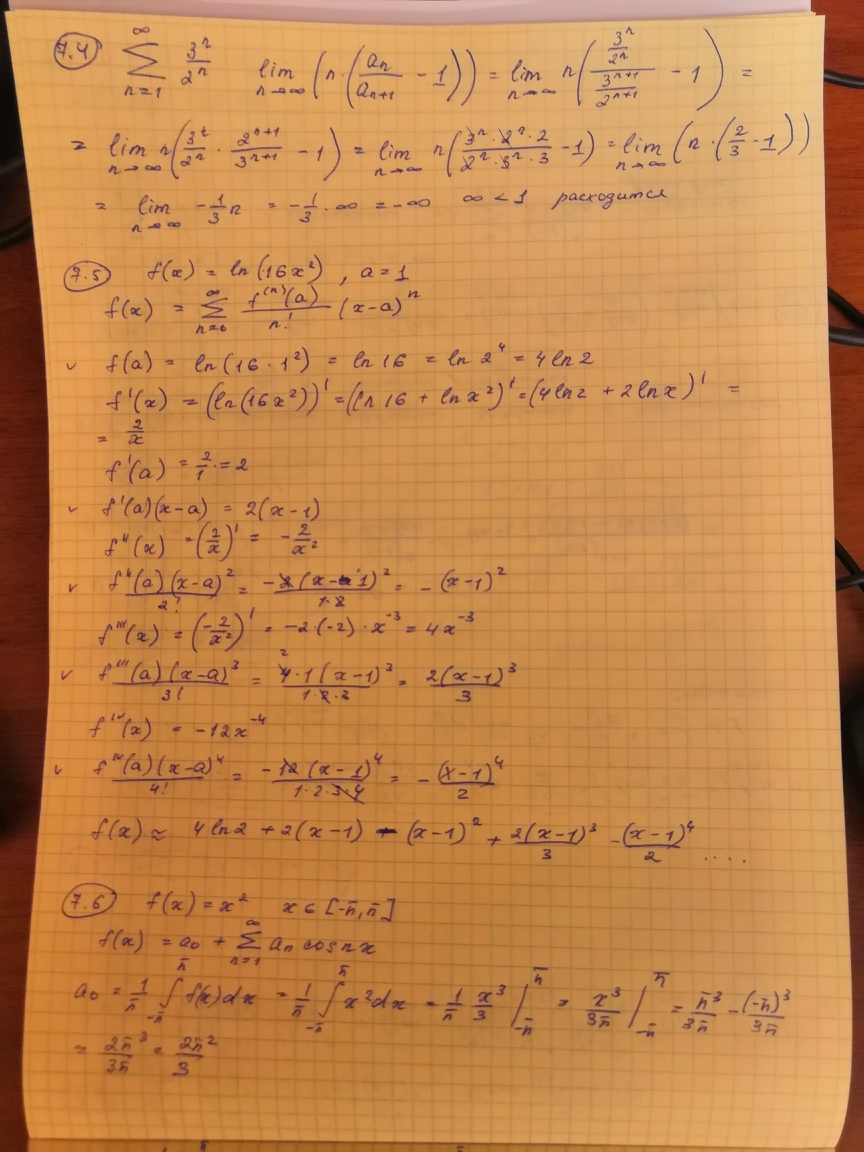 7.4 ∑_{n=1}^{∞} 3^n/2^n lim_{n→∞} (n·(a_n/a_{n+1} - 1)) = lim_{n→∞} n((3^n/2^n)/(3^{n+1}/2^{n+1}) - 1) =
= lim_{n→∞} n(3^n/2^n · 2^{n+1}/3^{n+1} - 1) = lim_{n→∞} n((3^n · 2^n · 2)/(2^n · 3^n · 3) - 1) = lim_{n→∞} (n · (2/3 - 1))
= lim_{n→∞} -1/3 n = -1/3 · ∞ = -∞ ∞ < 1 расходится
7.5 f(x) = ln(16x²), a = 1
f(x) = ∑_{n=0}^{∞} f^{(n)}(a)/n! (x-a)^n
v f(a) = ln(16·1²) = ln 16 = ln 2⁴ = 4 ln 2
f'(x) = (ln(16x²))' = (ln 16 + ln x²)' = (4 ln 2 + 2 ln x)' =
= 2/x
f'(a) = 2/1 = 2
v f'(a)(x-a) = 2(x-1)
f''(x) = (2/x)' = -2/x²
v f''(a)(x-a)²/2! = -2(x-1)²/(1·2) = -(x-1)²
f'''(x) = (-2/x²)' = -2·(-2)·x^{-3} = 4x^{-3}
v f'''(a)(x-a)³/3! = 4·1(x-1)³/(1·2·3) = 2(x-1)³/3
f^{IV}(x) = -12x^{-4}
v f^{IV}(a)(x-a)⁴/4! = -12(x-1)⁴/(1·2·3·4) = -(x-1)⁴/2
f(x) ≈ 4 ln 2 + 2(x-1) - (x-1)² + 2(x-1)³/3 - (x-1)⁴/2 ....
7.6 f(x) = x² x ∈ [-π, π]
f(x) = a₀ + ∑_{n=1}^{∞} a_n cos nx
a₀ = 1/π ∫_{-π}^{π} f(x)dx = 1/π ∫_{-π}^{π} x²dx = 1/π x³/3 |_{-π}^{π} = x³/3π |_{-π}^{π} = π³/3π - (-π)³/3π
= 2π³/3π = 2π²/3